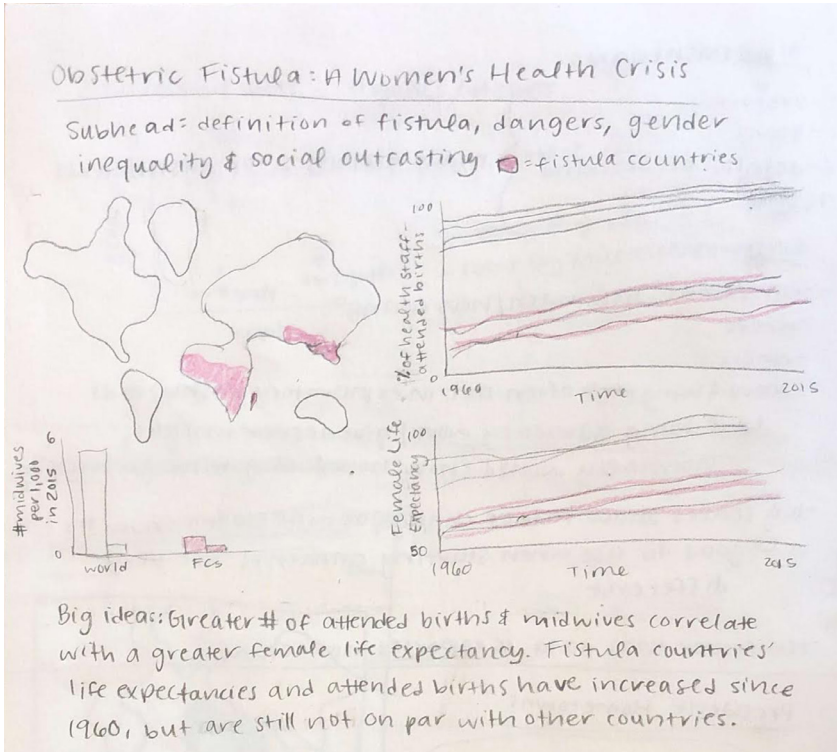 Obstetric Fistula: A Women's Health Crisis
Subhead: definition of fistula, dangers, gender
inequality & social outcasting
= fistula countries
100
% of health staff-
attended births
0
1960
Time
2015
6
#midwives
per 1,000
in 2015
0
world
FCs
100
Female Life
Expectancy
50
1960
Time
2015
Big ideas: Greater # of attended births & midwives correlate
with a greater female life expectancy. Fistula countries'
life expectancies and attended births have increased since
1960, but are still not on par with other countries.